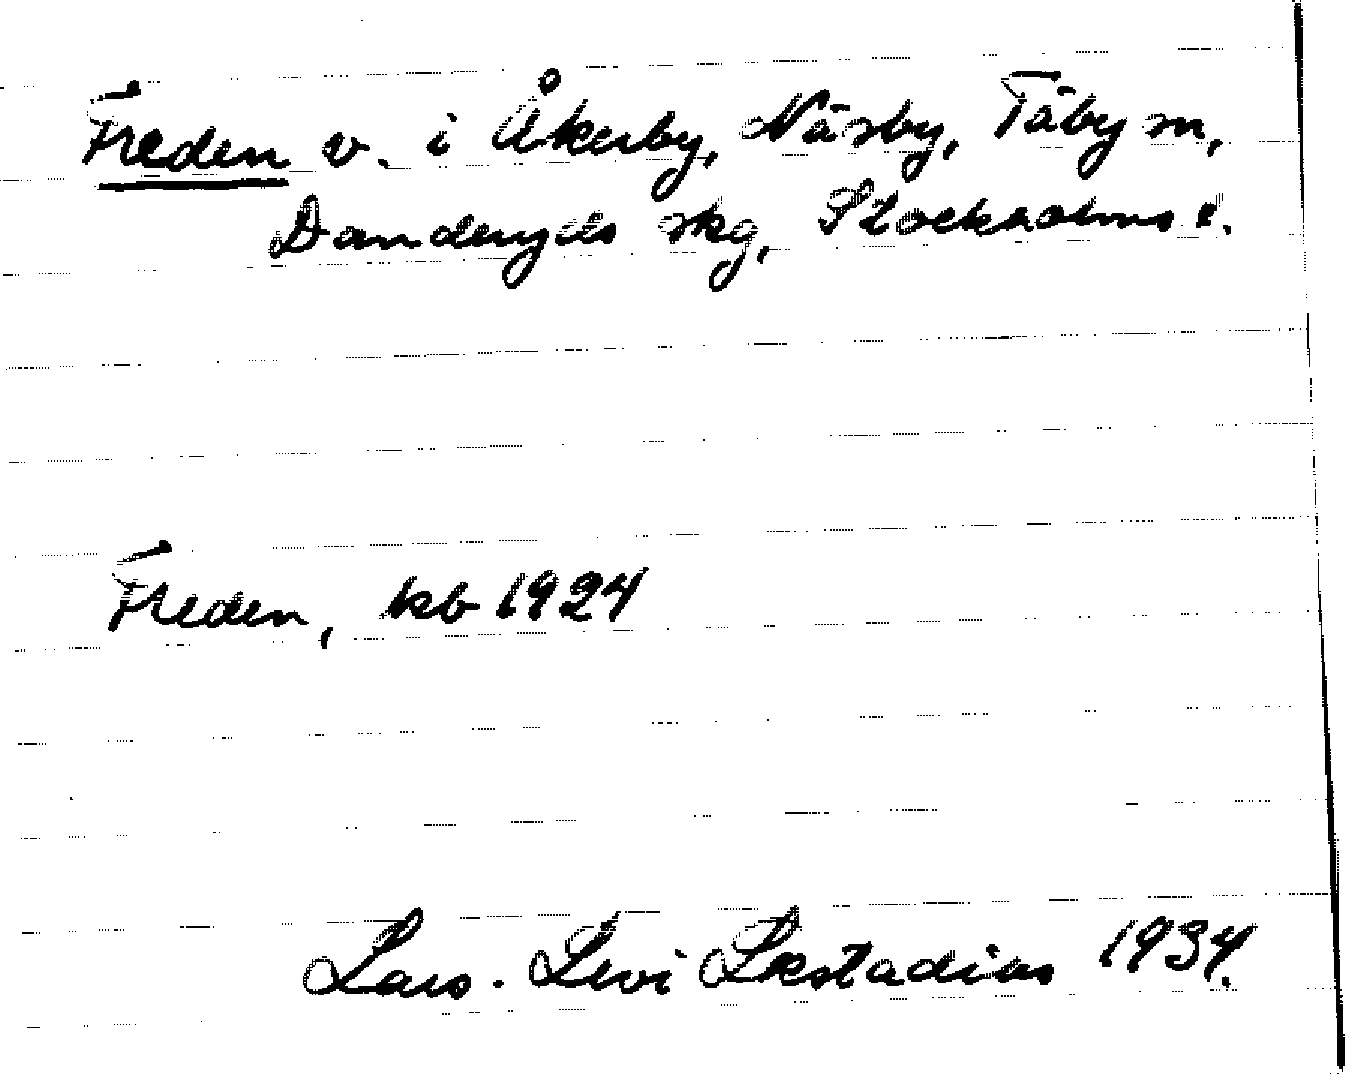 Freden v. i Åkerby, Näsby, Täby sn,
Danderyds skg, Stockholms l.
Freden, kb 1924
Lars. Levi Læstadius 1934.